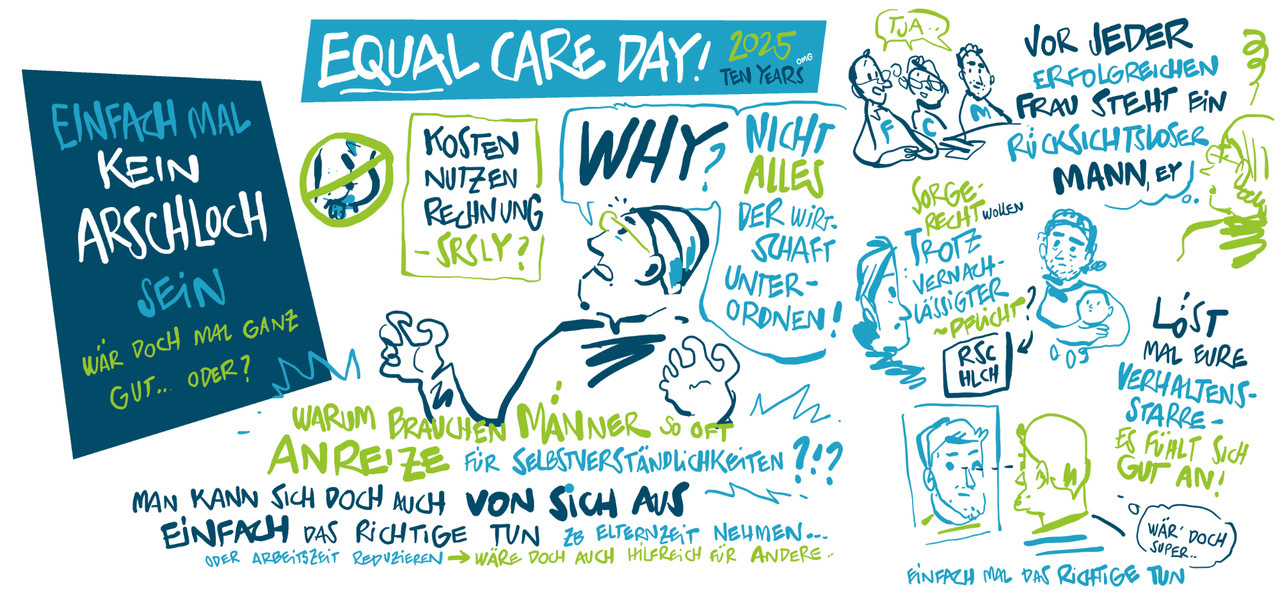 EQUAL CARE DAY!
2025
TEN YEARS
OMG
EINFACH MAL
KEIN
ARSCHLOCH
SEIN
WÄR DOCH MAL GANZ
GUT... ODER?
KOSTEN
NUTZEN
RECHNUNG
- SRSLY?
WHY?
NICHT
ALLES
DER WIRT-
SCHAFT
UNTER-
ORDNEN!
WARUM BRAUCHEN MÄNNER SO OFT
ANREIZE FÜR SELBSTVERSTÄNDLICHKEITEN ?!?
MAN KANN SICH DOCH AUCH VON SICH AUS
EINFACH DAS RICHTIGE TUN ZB ELTERNZEIT NEHMEN...
ODER ARBEITSZEIT REDUZIEREN → WÄRE DOCH AUCH HILFREICH FÜR ANDERE..
TJA..
F C M
VOR JEDER
ERFOLGREICHEN
FRAU STEHT EIN
RÜCKSICHTSLOSER
MANN, EY!
SORGE-
RECHT WOLLEN
TROTZ
VERNACH-
LÄSSIGTER
~PFLICHT?
RSC
HLCH
LÖST
MAL EURE
VERHALTENS-
STARRE -
ES FÜHLT SICH
GUT AN!
WÄR' DOCH
SUPER..
EINFACH MAL DAS RICHTIGE TUN